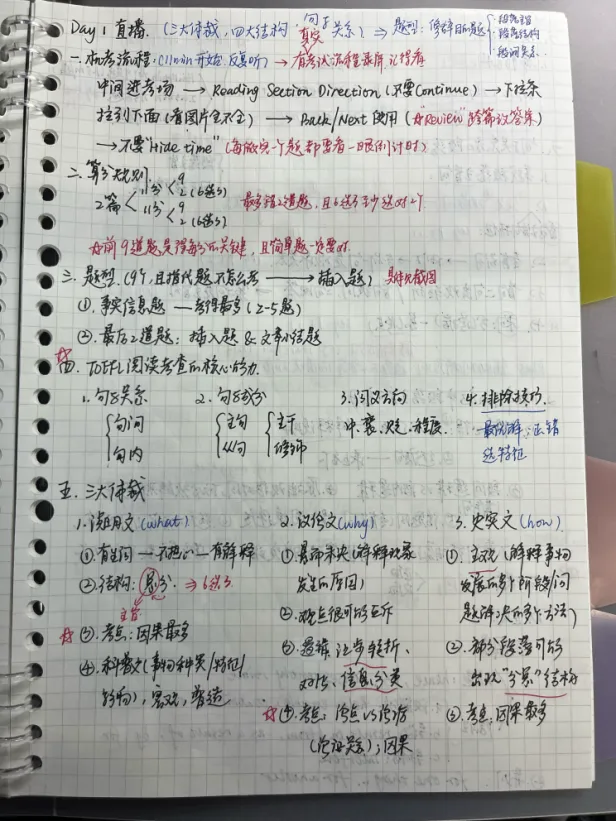 Day 1 直播. (三大体裁, 四大结构, 句子关系) ⇒ 题型: 修辞目的题
段落主旨
段落结构
段间关系
一. 机考流程: (11min开始, 反复听) → 有考试流程录屏, 记得看
中间进考场 → Reading Section Direction (不要Continue) → 下拉条
拉到下面 (看图片全不全) → Back/Next 使用 (用"Review"跨篇改答案)
→ 不要"Hide time" (每做完一个题都要看一眼倒计时)
二. 算分规则
2篇 11分 9 2 (6选3)
11分 9 2 (6选3)
最多错2道题, 且6选3至少选对2个
前9道题是得分的关键, 且简单题一定要对.
三. 题型. (9个, 且指代题不怎么考 → 插入题)
①. 事实信息题 — 考得最多 (2-5题)
②. 最后2道题: 插入题 & 文章小结题
四. TOEFL阅读考查的核心能力.
1. 句子关系 句间 句内
2. 句子成分 主句 从句 主干 修饰
3. 词义方向
中、褒、贬、程度.
4. 排除技巧.
最优解: 正错
选特征
五. 三大体裁
1. 说明文 (what)
①. 有生词 — 不担心 — 有解释
②. 结构: 总分. ⇒ 6选3
主旨
③. 考点: 因果最多
④. 科普文 (事物种类/特征/
), 客观, 
2. 议论文 (why)
①. 悬而未决 (解释现象
发生的原因)
②. 观点很可能互斥
③. 逻辑: 让步转折、
对比、信息分类
④. 考点: 论点 vs 论据
(论证关系); 因果
3. 史实文 (how)
①. 主观 (解释事物
发展的多个阶段/问
题解决的多个方法)
②. 部分段落可能
出现"分总"结构
③. 考点: 因果最多